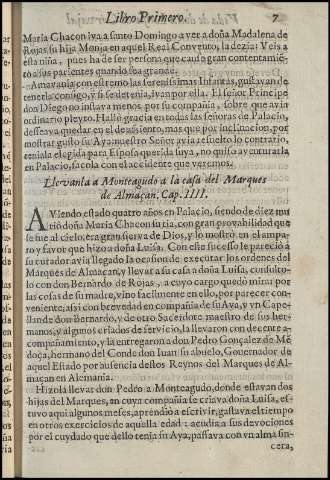 Libro Primero. 7
Maria Chacon iva a santo Domingo a ver a doña Madalena de
Rojas su hija Monja en aquel Real Convento, la dezia: Veis a
esta niña, pues ha de ser persona que cause gran contentamiẽ-
to a sus parientes quando sea grande.
Amavanla con estremo las serenissimas Infantas, gustavan de
tenerla consigo, y si se detenia, ivan por ella. El señor Principe
don Diego no instava menos por su compañia, sobre que avia
ordinario pleyto. Hallò gracia en todas las señoras de Palacio,
desseava quedar en el de assiento, mas que por inclinacion, por
mostrar gusto su Aya: nuestro Señor, q̃ via resuelto lo contrario,
teniala elegida para Esposa querida suya, no quiso aventurarla
en Palacio, sacola con el accidente que veremos.
Llevanla a Monteagudo a la casa del Marques
de Almaçan. Cap. IIII.
AViendo estado quatro años en Palacio, siendo de diez mu
riò doña Maria Chacon su tia, con gran provabilidad que
se fue al cielo, era gran sierva de Dios, y lo mostrò en el ampa-
ro y favor que hizo a doña Luisa. Con este sucesso le pareciò a
su curador avia llegado la ocasion de executar los ordenes del
Marques de Almaçan, y llevar a su casa a doña Luisa, consulto-
lo con don Bernardo de Rojas, a cuyo cargo quedò mirar por
las cosas de su madre, vino facilmente en ello, por parecer con-
veniente, assi con brevedad en compañia de su Aya, y vn Cape-
llan de don Bernardo, y de otro Sacerdote maestro de sus her-
manos, y algunos criados de servicio, la llevaron con decente a-
compañamiento, y la entregaron a don Pedro Gonçalez de Mẽ
doça, hermano del Conde don Iuan su abuelo, Governador de
aquel Estado por ausencia destos Reynos del Marques de Al-
maçan en Alemania.
Hizola llevar don Pedro a Monteagudo, donde estavan dos
hijas del Marques, en cuya compañia se criava doña Luisa, es-
tuvo aqui algunos meses, aprendiò a escrivir, gastava el tiempo
en otros exercicios de aquella edad: acudia a sus devociones
por el cuydado que dello tenia su Aya, passava con vn alma sin-
cera,